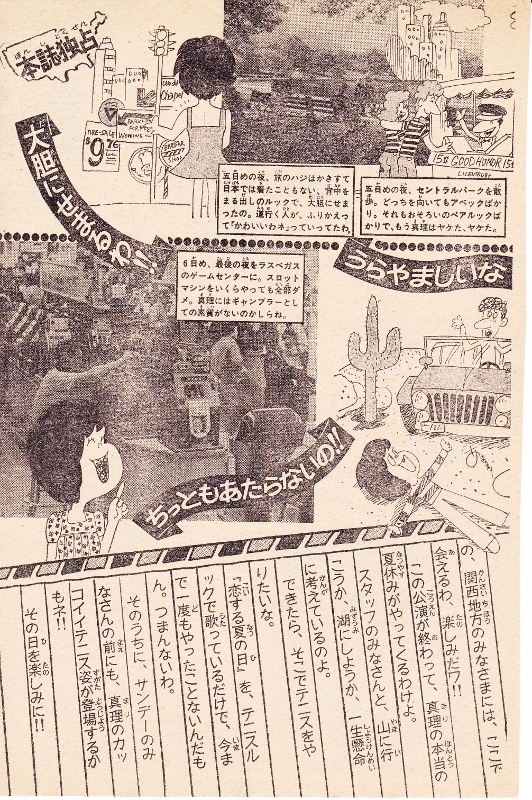 本誌独占
大胆にせまるわ!!
五日めの夜、旅のハジはかきすて
日本では着たこともない、背中を
まる出しのルックで、大胆にせま
ったの。道行く人が、ふりかえっ
て「かわいいわネ」っていってたわ。
五日めの夜、セントラルパークを散
歩。どっちを向いてもアベックばか
り。それもおそろいのペアルックば
かりで、もう真理はヤケた、ヤケた。
15¢ GOOD HUMOR 15¢
$9.76
うらやましいな
6日め、最後の夜をラスベガス
のゲームセンターに。スロット
マシンをいくらやっても全部ダ
メ。真理にはギャンブラーとし
ての素質がないのかしらね。
ちっともあたらないの!!
の、関西地方のみなさまには、ここで
会えるわ、楽しみだワ!!
この公演が終わって、真理の本当の
夏休みがやってくるわけよ。
スタッフのみなさんと、山に行
こうか、湖にしようか、一生懸命
に考えているのよ。
できたら、そこでテニスをや
りたいな。
『恋する夏の日』を、テニスル
ックで歌っているだけで、今ま
で一度もやったことないんだも
ん。つまんないわ。
そのうちに、サンデーのみ
なさんの前にも、真理のカッ
コイイテニス姿が登場するか
もネ!!
その日を楽しみに!!